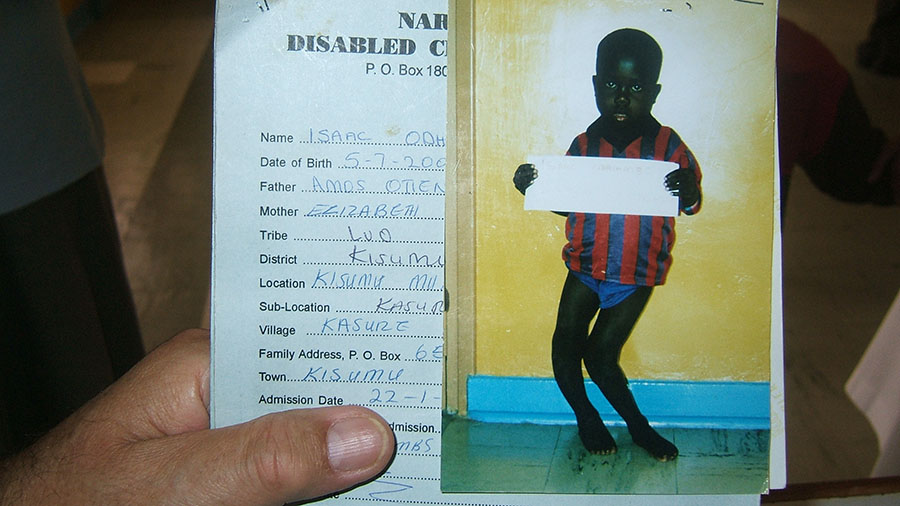 NAR
DISABLED C
P. O. Box 180
Name ISAAC ODH
Date of Birth 5-7-200
Father AMOS OTIEN
Mother ELIZABETH
Tribe LUO
District KISUMU
Location KISUMU MU
Sub-Location KASUR
Village KASURE
Family Address, P. O. Box 6E
Town KISUMU
Admission Date 22-1-
dmission
MBS